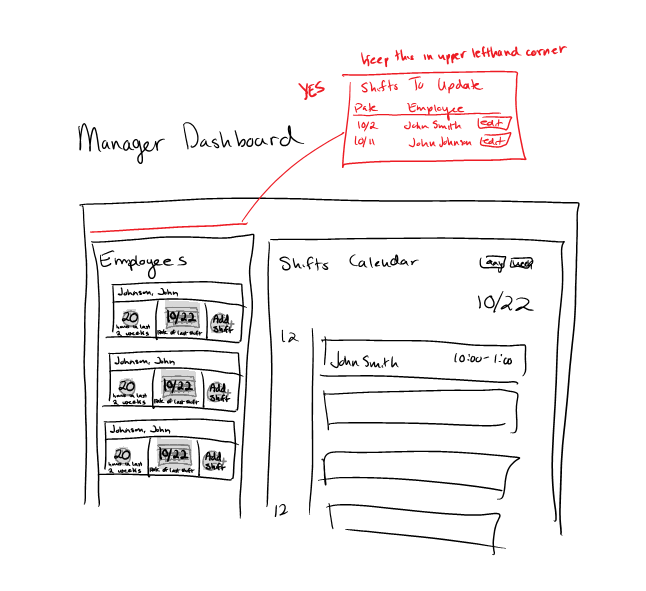 Keep this in upper lefthand corner
YES
Shifts To Update
Date Employee
10/2 John Smith edit
10/11 John Johnson edit
Manager Dashboard
Employees
Johnson, John
20
hours in last
2 weeks
10/22
Date of last shift
Add
Shift
Johnson, John
20
hours in last
2 weeks
10/22
Date of last shift
Add
Shift
Johnson, John
20
hours in last
2 weeks
10/22
Date of last shift
Add
Shift
Shifts Calendar
week
10/22
12
John Smith 10:00-1:00
12